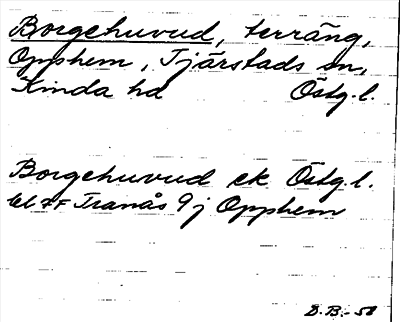 Borgehuvud, terräng,
Opphem, Tjärstads sn,
Kinda hd Östg.l.
Borgehuvud ek Östg.l.
bl 7F Tranås 9j Opphem
D.B.-58